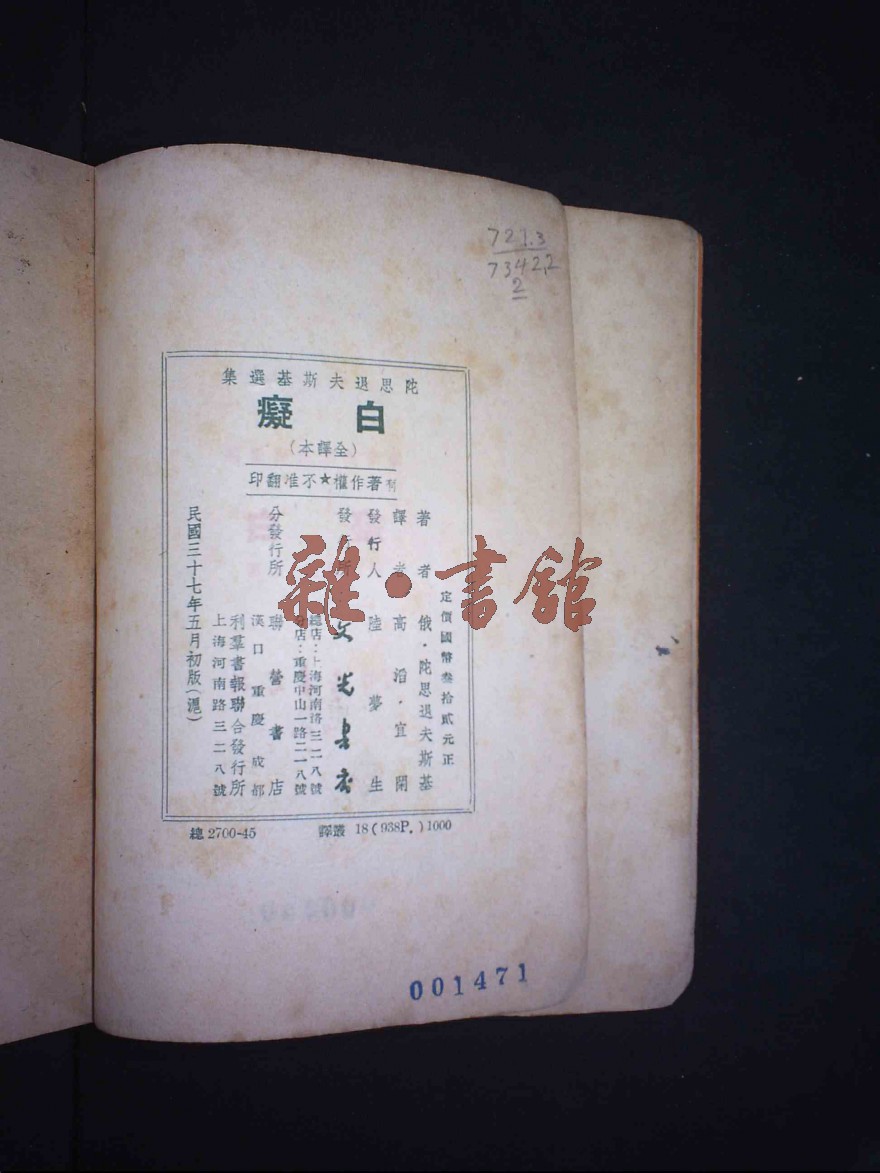 721.3
7342.2
2
陀思退夫斯基選集
白癡
（全譯本）
有著作權★不准翻印
定價國幣叁拾貳元正
著者 俄·陀思退夫斯基
譯者 高滔·宜閑
發行人 陸夢生
發行所 文光書店
總店：上海河南路三二八號
分店：重慶中山一路二一八號
分發行所 聯營書店
漢口 重慶 成都
利羣書報聯合發行所
上海河南路三二八號
民國三十七年五月初版（滬）
總 2700-45
譯叢 18 (938P.) 1000
001471
雜·書館